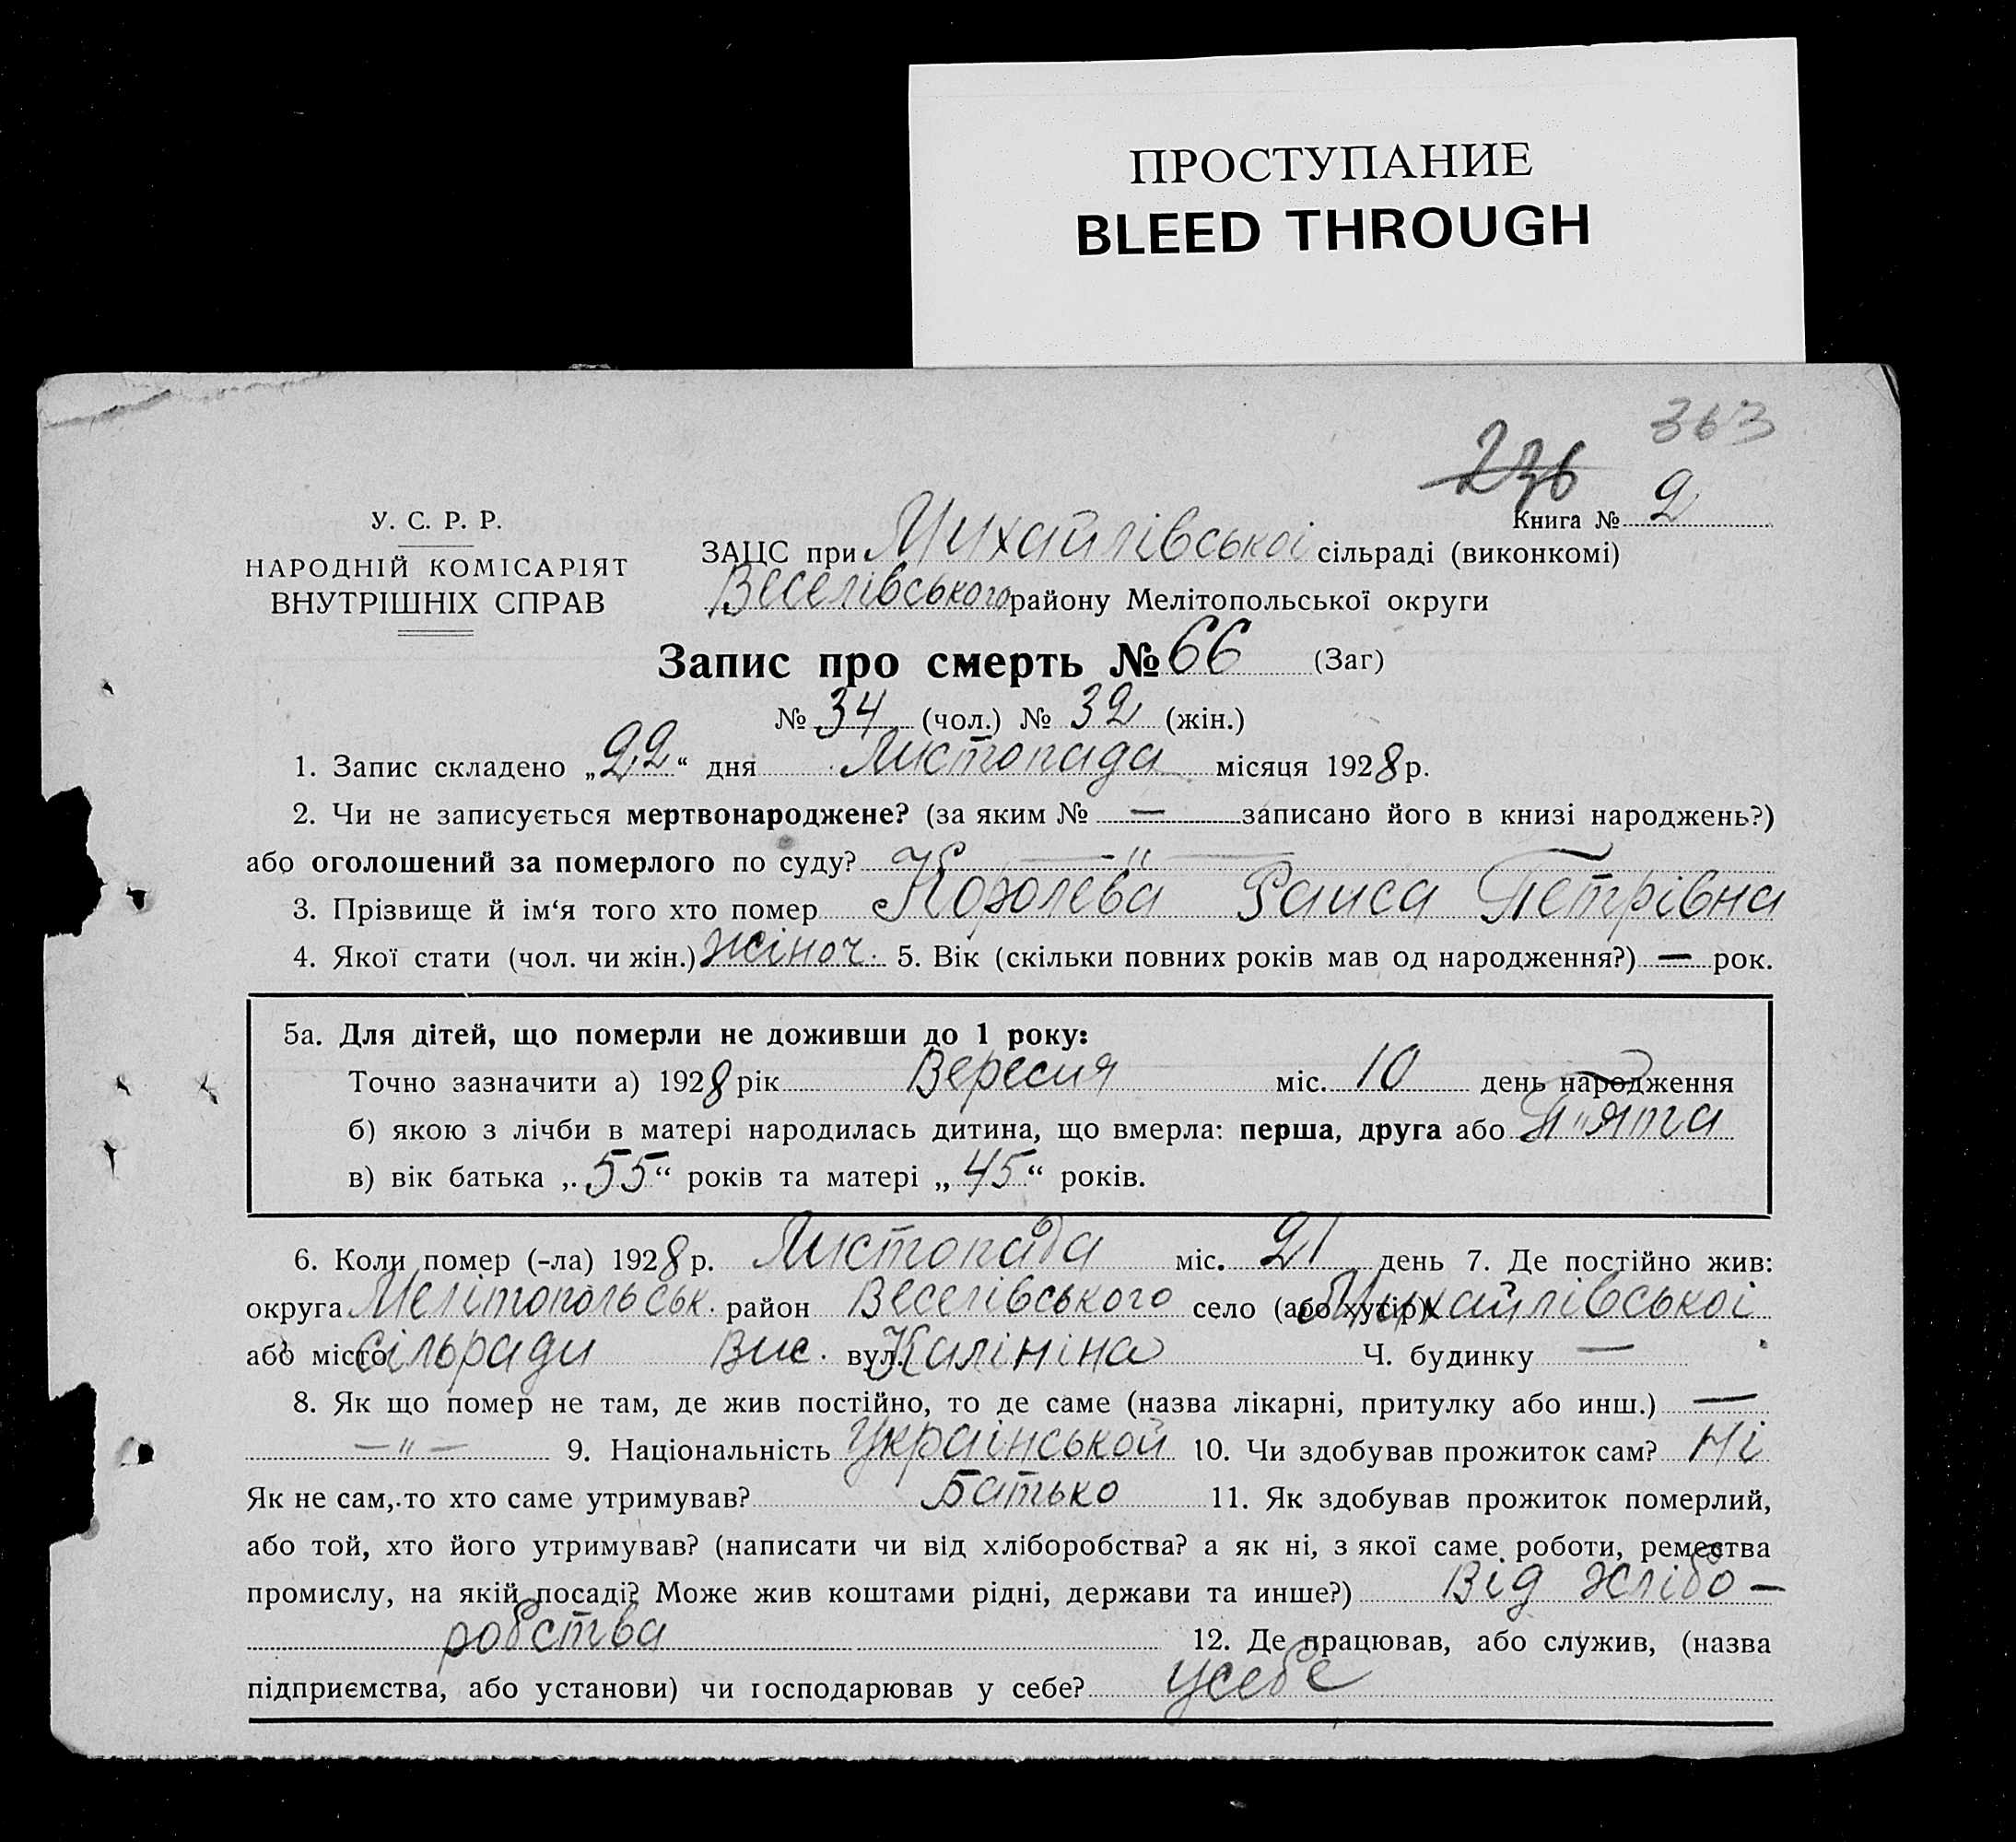 ПРОСТУПАНИЕ
BLEED THROUGH
363
236
Книга № 2
У. С. Р. Р.
НАРОДНІЙ КОМІСАРІЯТ
ВНУТРІШНІХ СПРАВ
ЗАЦС при Михайлівської сільраді (виконкомі)
Веселівського району Мелітопольської округи
Запис про смерть № 66 (Заг)
№ 34 (чол.) № 32 (жін.)
1. Запис складено „22“ дня Листопада місяця 1928 р.
2. Чи не записується мертвонароджене? (за яким № — записано його в книзі народжень?)
або оголошений за померлого по суду? — " —
3. Прізвище й ім‘я того хто помер Королева Раиса Петрівна
4. Якої стати (чол. чи жін.) жіноч. 5. Вік (скільки повних років мав од народження?) — рок.
5а. Для дітей, що померли не доживши до 1 року:
Точно зазначити а) 1928 рік Вересня міс. 10 день народження
б) якою з лічби в матері народилась дитина, що вмерла: перша, друга або П"ята
в) вік батька „55“ років та матері „45“ років.
6. Коли помер (-ла) 1928 р. Листопада міс. 21 день 7. Де постійно жив:
округа Мелітопольськ. район Веселівського село (або хутір) Михайлівської
або місто сільради Вис. вул. Калініна Ч. будинку —
8. Як що помер не там, де жив постійно, то де саме (назва лікарні, притулку або инш.) —
— " — 9. Національність Української 10. Чи здобував прожиток сам? Ні
Як не сам, то хто саме утримував? Батько 11. Як здобував прожиток померлий,
або той, хто його утримував? (написати чи від хліборобства? а як ні, з якої саме роботи, ремества
промислу, на якій посаді? Може жив коштами рідні, держави та инше?) Від хлібо—
робства 12. Де працював, або служив, (назва
підприємства, або установи) чи господарював у себе? усебе